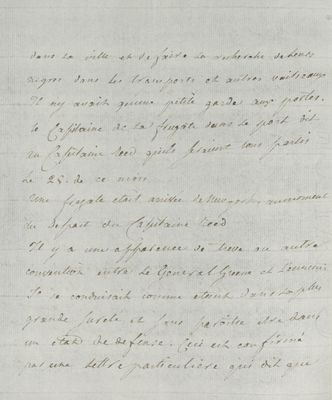 dans la ville et de faire la recherche de leurs
negres dans les transports et autres vaisseaux
Il n'y avait qu'une petite garde aux portes.
le Capitaine de la fregate dans le port dit
au Capitaine qu'ils seraient tous partis
le 25. de ce mois.
Une fregate etait arrivée de Newyork au moment
du depart du Capitaine
Il y a une apparence de treve ou autre
convention entre le General Greene et l'ennemi
Il se conduisait comme etant dans la plus
grande sureté et sans paroitre etre dans
un etat de defense. Ceci est confirmé
par une lettre particuliere qui dit que